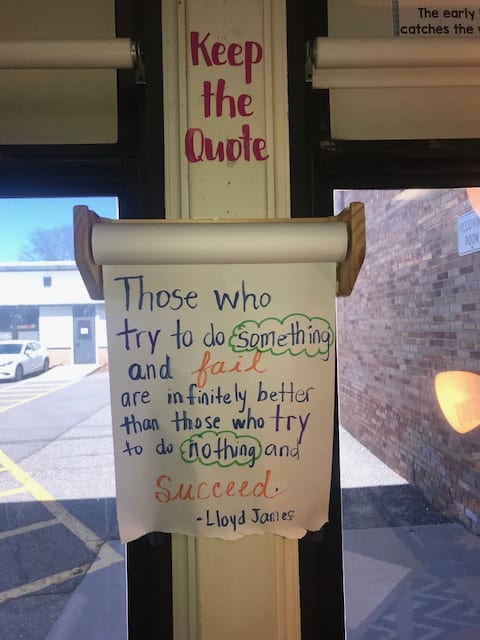 Keep
the
Quote
The early
catches the
Those who
try to do something
and fail
are infinitely better
than those who try
to do nothing and
succeed.
-Lloyd James
ROOM